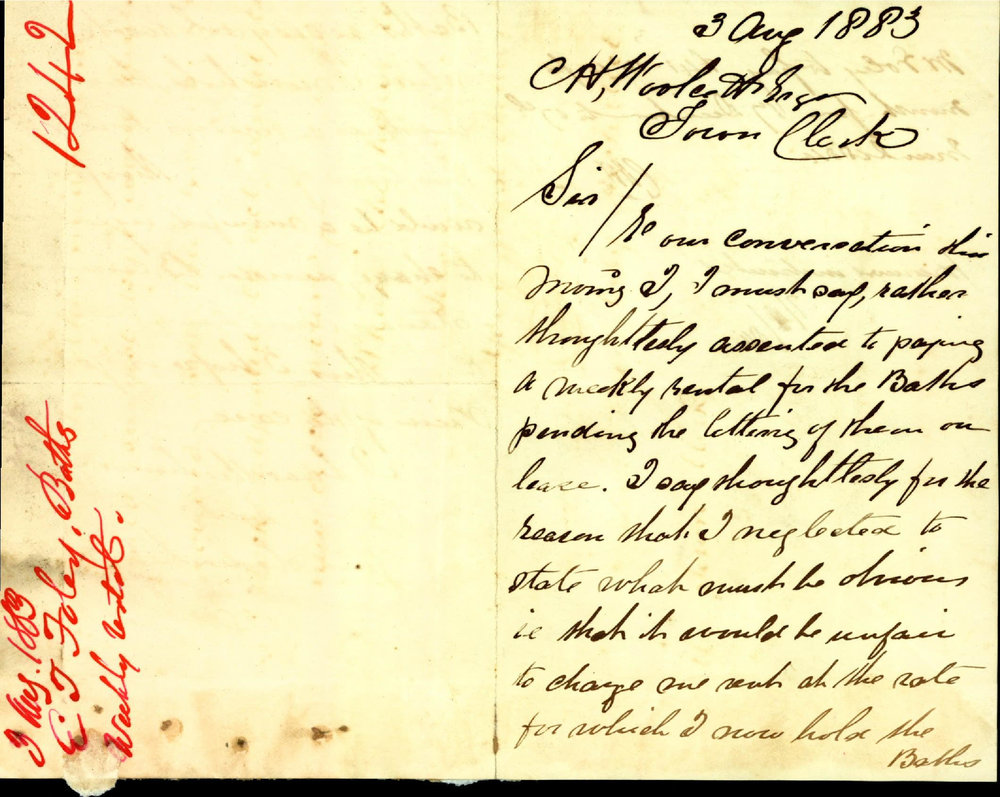 3 Aug 1883
C H, Woolcott Esqr
Town Clerk
Sir /
Re our conversation this
Morng I, I must say, rather
thoughtlessly assented to paying
a weekly rental for the Baths
pending the letting of them on
lease. I say thoughtlessly for the
reason that I neglected to
state what must be obvious
ie that it would be unfair
to charge me rent at the rate
for which I now hold the
Baths
1242
3 Aug. 1883
E T Foley. Baths
Weekly rental.